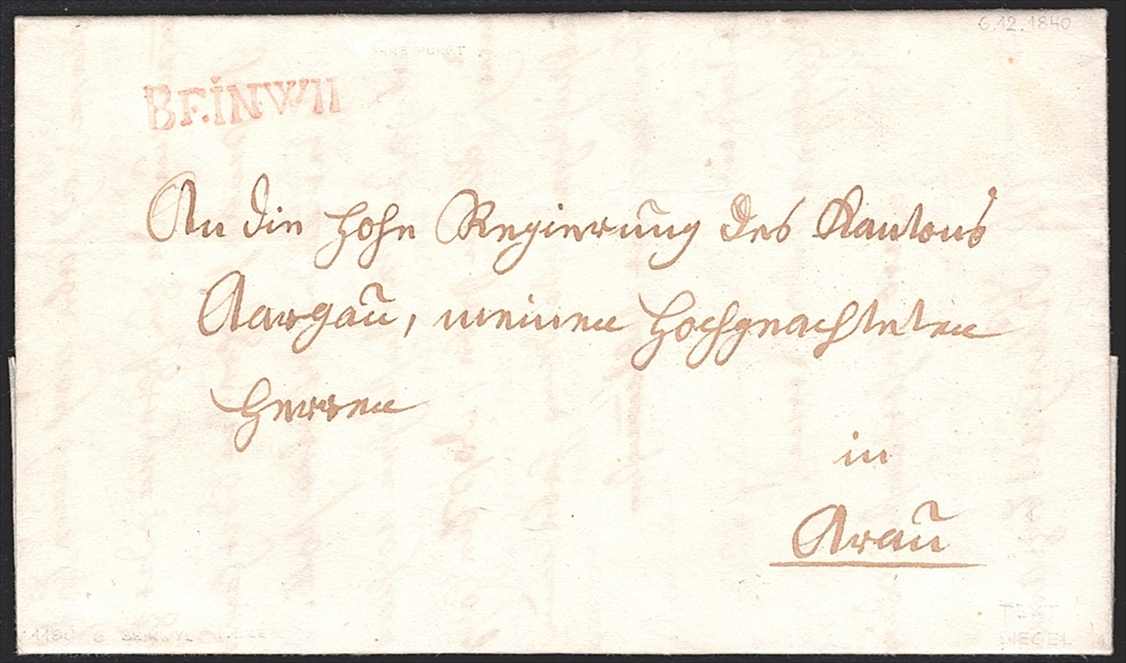 6.12.1840
BEINWIl
An die hohe Regierung des Kantons
Aargau, meinen Hochgeachteten
Herren
in
Arau
TEXT
SIEGEL